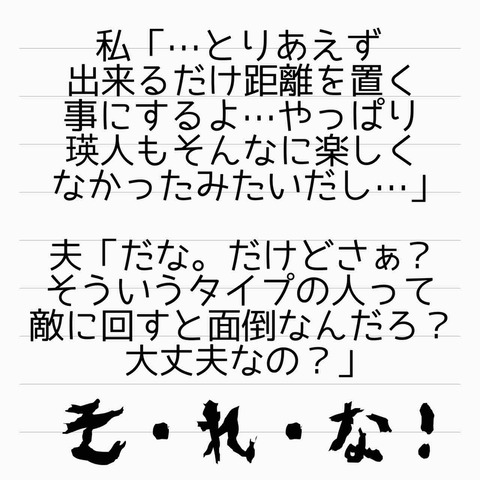 私「…とりあえず
出来るだけ距離を置く
事にするよ…やっぱり
瑛人もそんなに楽しく
なかったみたいだし…」
夫「だな。だけどさぁ？
そういうタイプの人って
敵に回すと面倒なんだろ？
大丈夫なの？」
そ・れ・な！